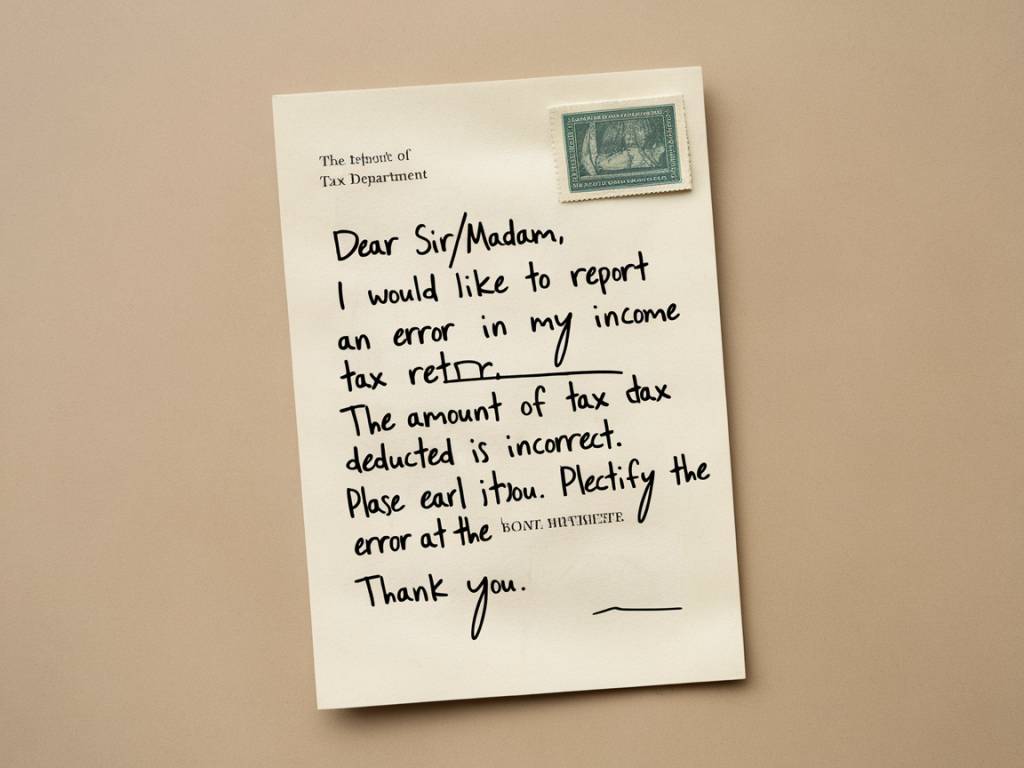 The of
Tax Department
Dear Sir/Madam,
I would like to report
an error in my income
tax
The amount of tax dax
deducted is incorrect.
Plase earl itsou. Plectify the
error at the
Thank you.